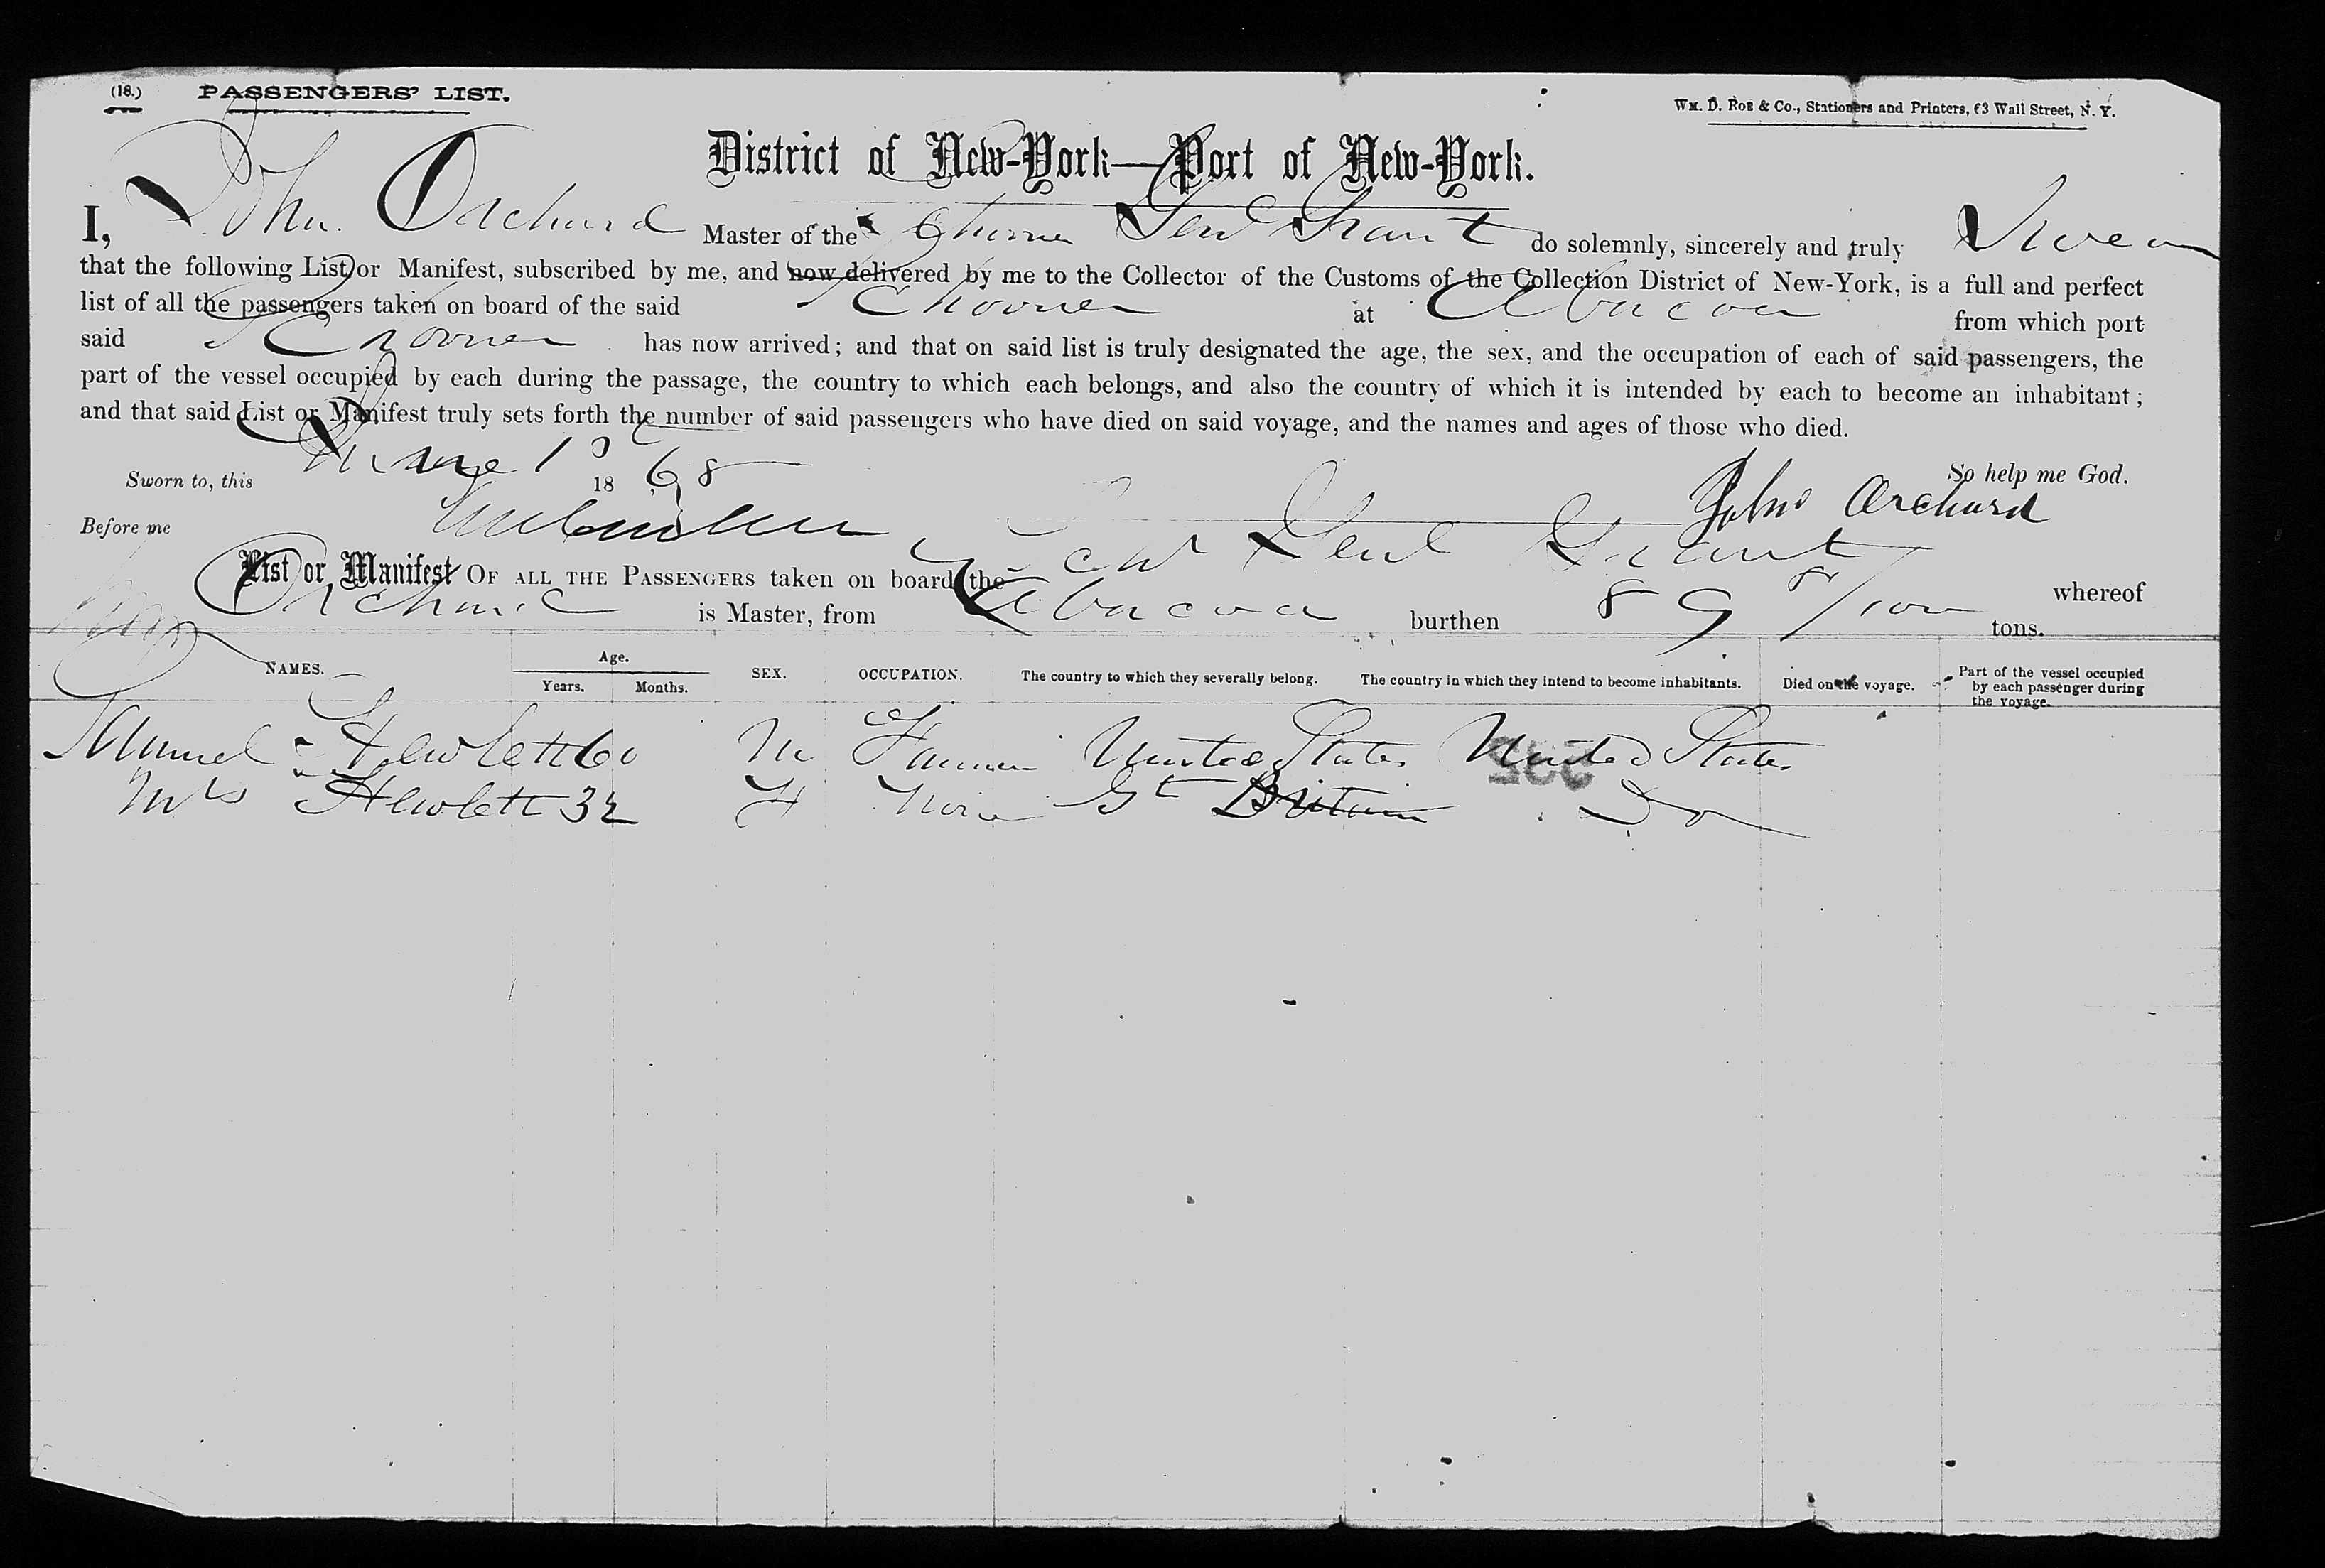 (18.) PASSENGERS' LIST.
Wm. D. Roe & Co., Stationers and Printers, 63 Wall Street, N. Y.
District of New-York—Port of New-York.
I, John Orchard Master of the Schooner Genl Grant do solemnly, sincerely and truly Swear
that the following List or Manifest, subscribed by me, and now delivered by me to the Collector of the Customs of the Collection District of New-York, is a full and perfect
list of all the passengers taken on board of the said Schooner at Abacoa from which port
said Schooner has now arrived; and that on said list is truly designated the age, the sex, and the occupation of each of said passengers, the
part of the vessel occupied by each during the passage, the country to which each belongs, and also the country of which it is intended by each to become an inhabitant;
and that said List or Manifest truly sets forth the number of said passengers who have died on said voyage, and the names and ages of those who died.
So help me God.
Sworn to, this June 1 1868
John Orchard
Before me
List or Manifest OF ALL THE PASSENGERS taken on board the Schr Genl Grant whereof
Orchard is Master, from Abacoa burthen 89 8/100 tons.
NAMES. Age. Years. Months. SEX. OCCUPATION. The country to which they severally belong. The country in which they intend to become inhabitants. Died on the voyage. Part of the vessel occupied by each passenger during the voyage.
Samuel Hewlett 60 M Farmer United States United States
Mrs Hewlett 32 F None Gt Britain Do